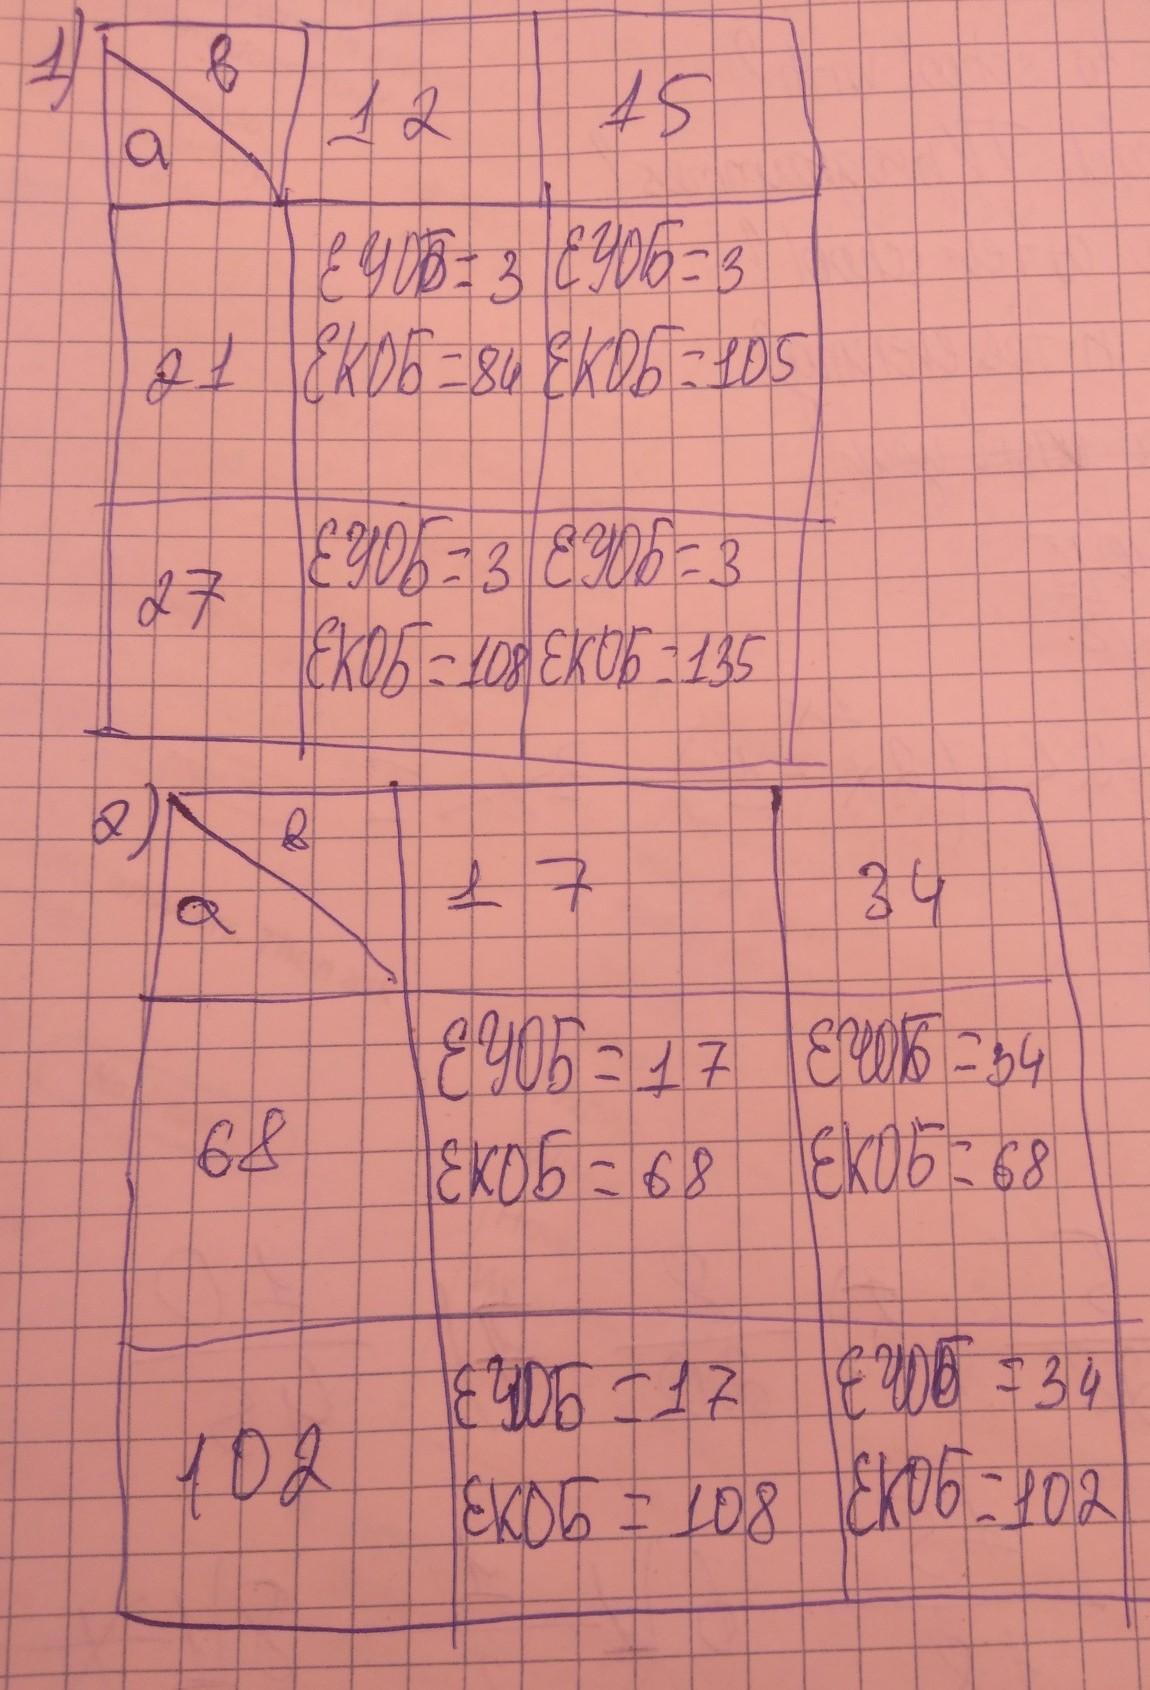 1)
в
а
12
15
21
ЕҮОБ=3
ЕҮОБ=3
ЕКОБ=84
ЕКОБ=105
27
ЕҮОБ=3
ЕҮОБ=3
ЕКОБ=108
ЕКОБ=135
2)
в
а
17
34
68
ЕҮОБ=17
ЕҮОБ=34
ЕКОБ=68
ЕКОБ=68
102
ЕҮОБ=17
ЕҮОБ=34
ЕКОБ=108
ЕКОБ=102